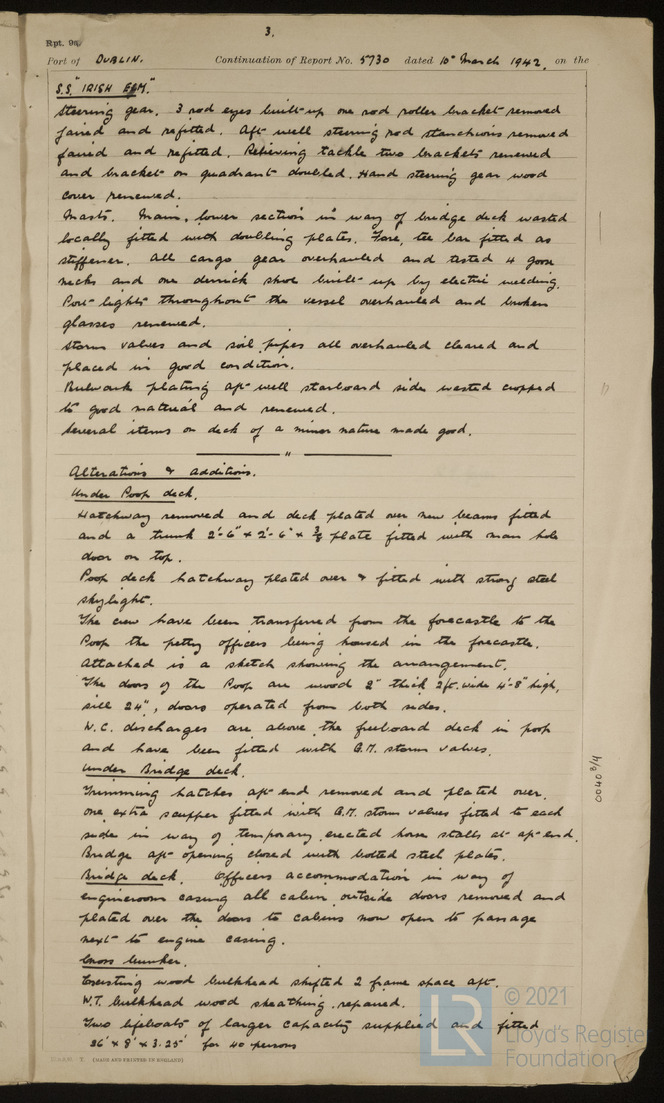 3.
Rpt. 9a.
Port of DUBLIN. Continuation of Report No. 5730 dated 10th March 1942, on the
S.S. "IRISH ELM."
Steering gear. 3 rod eyes built-up one rod roller bracket removed
faired and refitted. Aft well steering rod stanchions removed
faired and refitted. Relieving tackle two brackets renewed
and bracket on quadrant doubled. Hand steering gear wood
cover renewed.
Masts. Main, lower section in way of bridge deck wasted
locally fitted with doubling plates. Fore, tee bar fitted as
stiffener. All cargo gear overhauled and tested 4 goose
necks and one derrick shoe built-up by electric welding.
Port lights throughout the vessel overhauled and broken
glasses renewed.
Storm valves and soil pipes all overhauled cleared and
placed in good condition.
Bulwark plating aft well starboard side wasted cropped
to good material and renewed.
Several items on deck of a minor nature made good.
"
Alterations & Additions.
Under Poop deck.
Hatchway removed and deck plated over new beams fitted
and a trunk 2'-6" x 2'-6" x 3/8 plate fitted with man hole
door on top.
Poop deck hatchway plated over & fitted with strong steel
skylight.
The crew have been transferred from the forecastle to the
Poop the petty officers being housed in the forecastle.
Attached is a sketch showing the arrangement.
The doors of the Poop are wood 2" thick 2ft. wide 4'-8" high,
sill 24", doors operated from both sides.
W.C. discharges are above the freeboard deck in poop
and have been fitted with G.M. storm valves.
Under Bridge deck.
Trimming hatches aft end removed and plated over.
One extra scupper fitted with G.M. storm valves fitted to each
side in way of temporary erected horse stalls at aft end.
Bridge aft opening closed with bolted steel plates.
Bridge deck. Officers accommodation in way of
engineroom casing all cabin outside doors removed and
plated over the doors to cabins now open to passage
next to engine casing.
Cross bunker.
Existing wood bulkhead shifted 2 frame space aft.
W.T. bulkhead wood sheathing repaired.
Two lifeboats of larger capacity supplied and fitted
26' x 8' x 3.25' for 40 persons
T. (MADE AND PRINTED IN ENGLAND)
0040 3/4
LR
© 2021
Lloyd's Register
Foundation